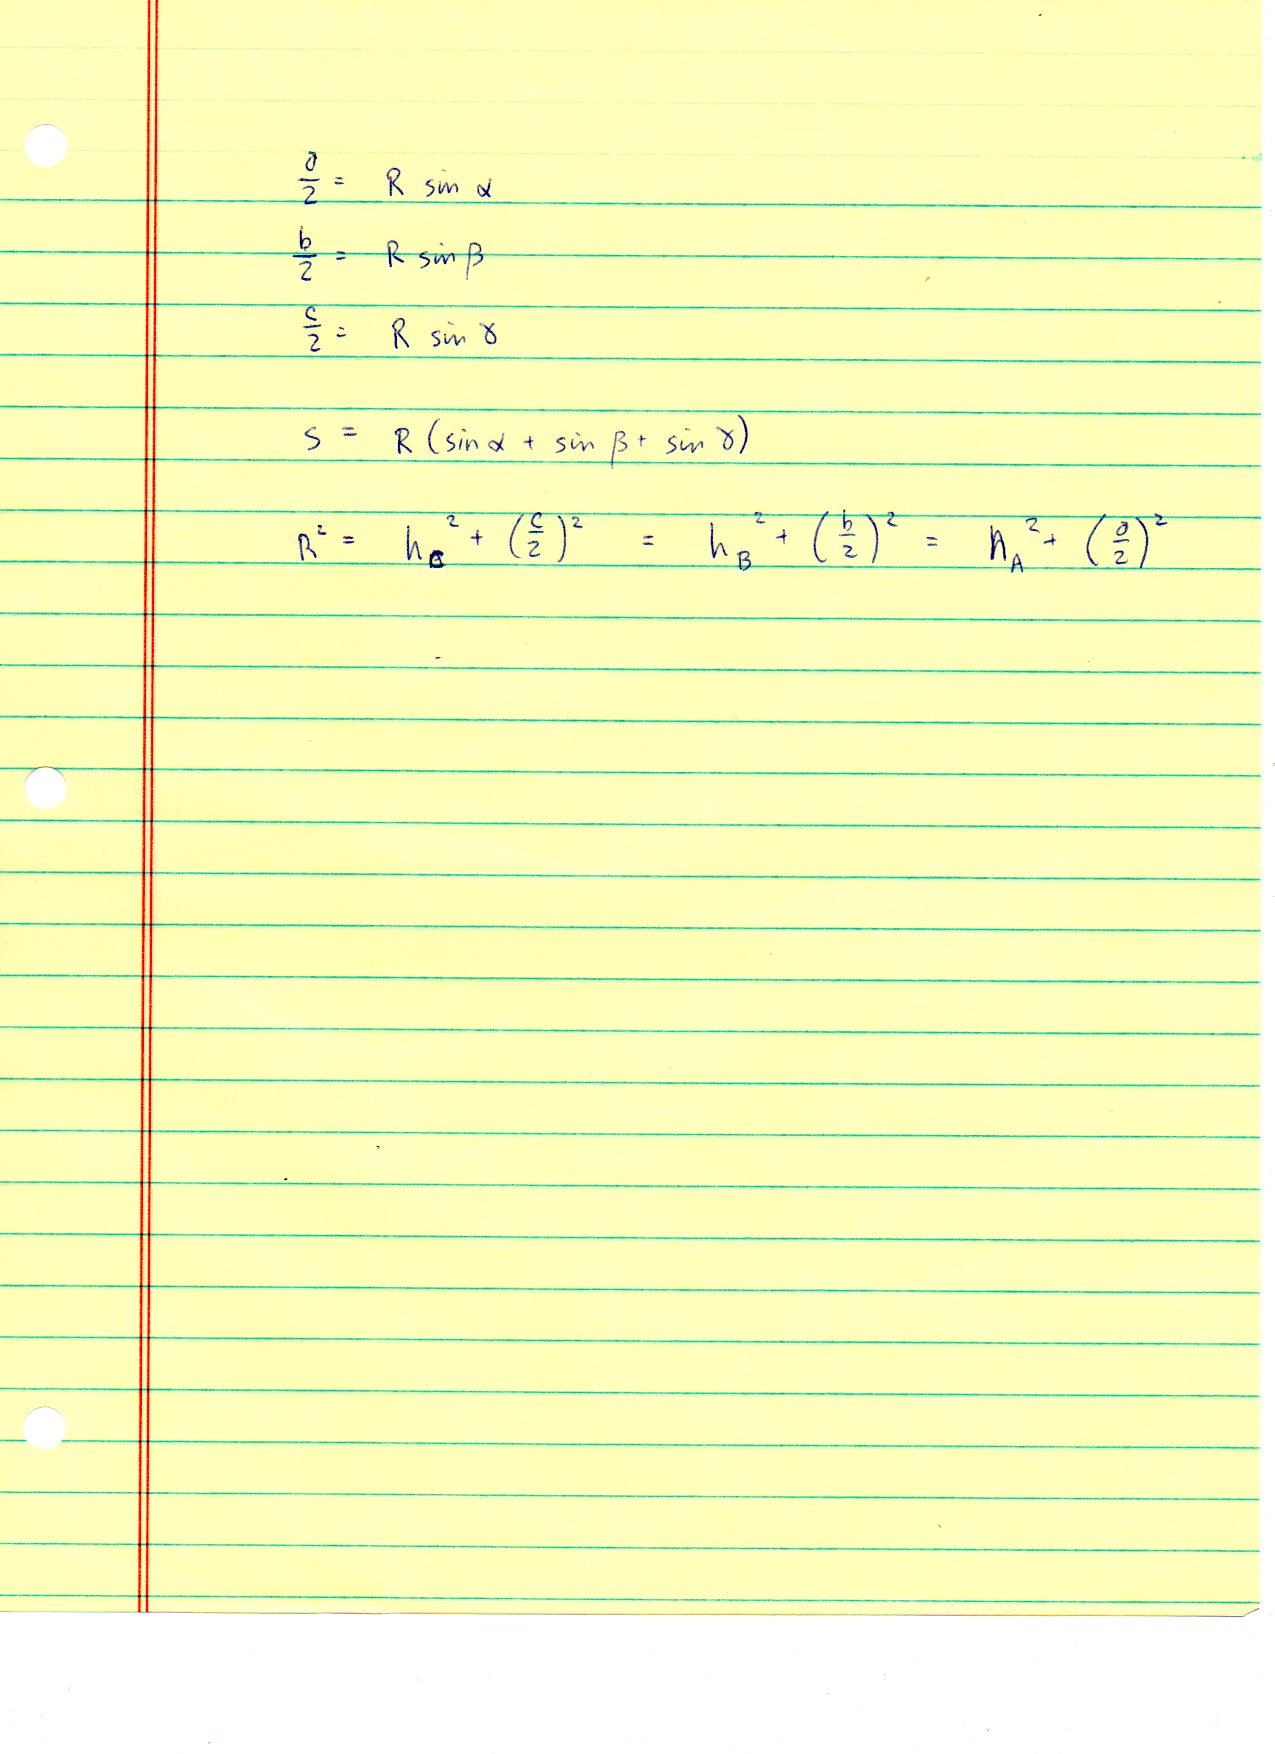 a/2 = R sin α
b/2 = R sin β
c/2 = R sin γ
s = R (sin α + sin β + sin γ)
R² = h_C² + (c/2)² = h_B² + (b/2)² = h_A² + (a/2)²